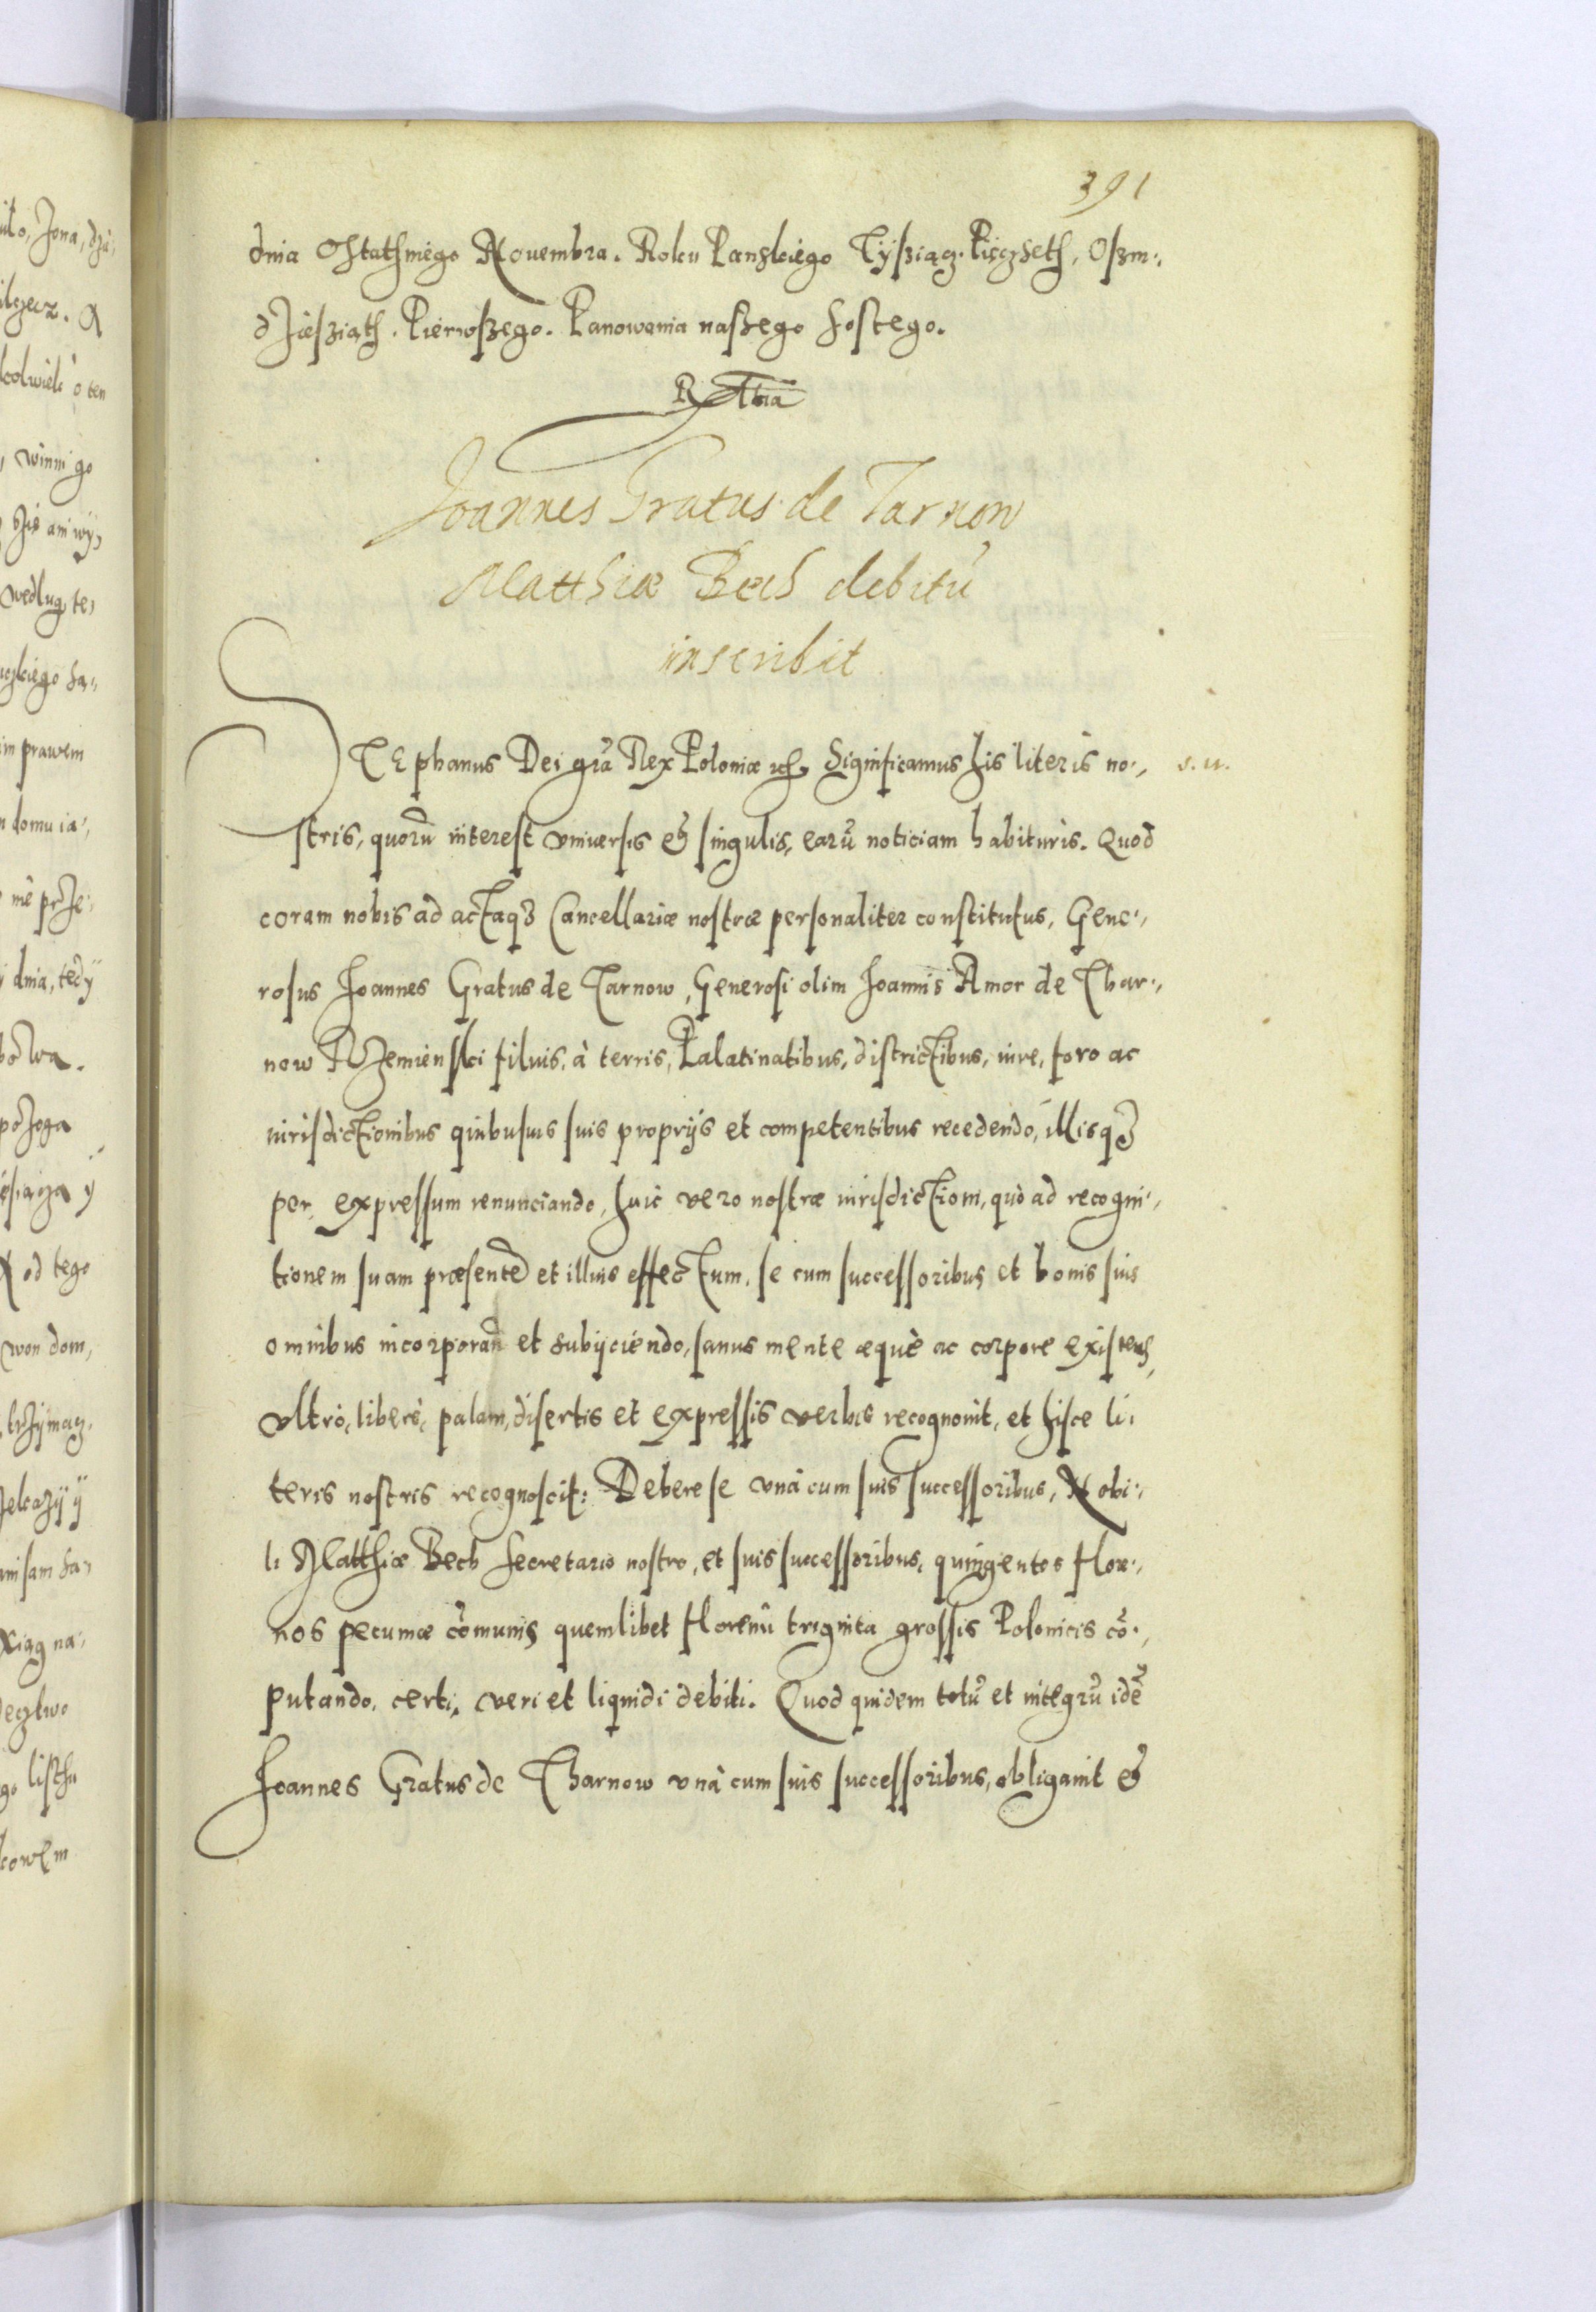 391
dnia Ostathniego Nouembra. Roku Panskiego Tysziącz. Pięczseth, Oszm„
dziesziąth. Pierwszego. Panowania naszego Szostego.
Joannes Gratus de Tarnow
Matthiæ Bech debitū
inscribit
STEphanus Dei grā Rex Poloniæ etc. Significamus his literis no„ s. u.
stris, quorū interest vniuersis et singulis, earū noticiam habituris. Quod
coram nobis ad actaqȝ Cancellariæ nostræ personaliter constitutus, Gene„
rosus Joannes Gratus de Tarnow, Generosi olim Joannis Amor de Thar„
now Rzemienski filius, à terris, Palatinatibus, districtibus, iure, foro ac
iurisdictionibus quibusuis suis proprijs et competentibus recedendo, illisqȝ
per expressum renunciando, huic vero nostræ iurisdictioni, quò ad recogni„
tionem suam præsentē et illius effectum, se cum successoribus et bonis suis
omnibus incorporan̄ et subijciendo, sanus mente æquè ac corpore existens,
vltrò, liberè, palam, disertis et expressis verbis recognouit, et hisce li„
teris nostris recognoscit: Debere se vnà cum suis successoribus, Nobi„
li Matthiæ Bech Secretario nostro, et suis successoribus, quingentos flore„
nos pecuniæ cōmunis quemlibet florenū triginta grossis Polonicis cō„
putando, certi, veri et liquidi debiti. Quod quidem totū et integrū idē
Joannes Gratus de Tharnow vnà cum suis successoribus, obligauit et